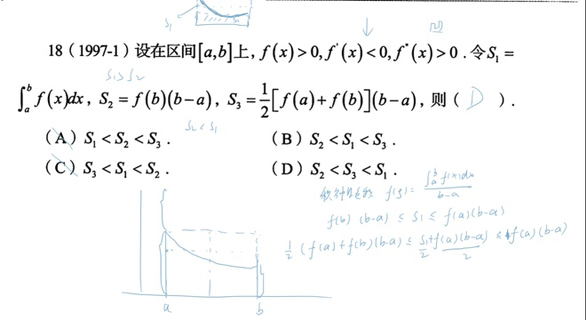 S₁
凹
18（1997-1）设在区间[a,b]上, f(x)>0, f'(x)<0, f''(x)>0 . 令S₁ =
S₁>S₂
∫ₐᵇ f(x)dx, S₂ = f(b)(b−a), S₃ = 1/2[f(a)+f(b)](b−a), 则（ D ）.
S₂<S₁
（A）S₁ < S₂ < S₃ .
（B）S₂ < S₁ < S₃ .
（C）S₃ < S₁ < S₂ .
（D）S₂ < S₃ < S₁ .
f(ξ)= ∫ₐᵇ f(x)dx / b−a
f(b) (b−a) ≤ S₁ ≤ f(a)(b−a)
1/2 (f(a)+f(b))(b−a) ≤ S₁+f(a)(b−a) / 2 ≤ f(a)(b−a)
a b